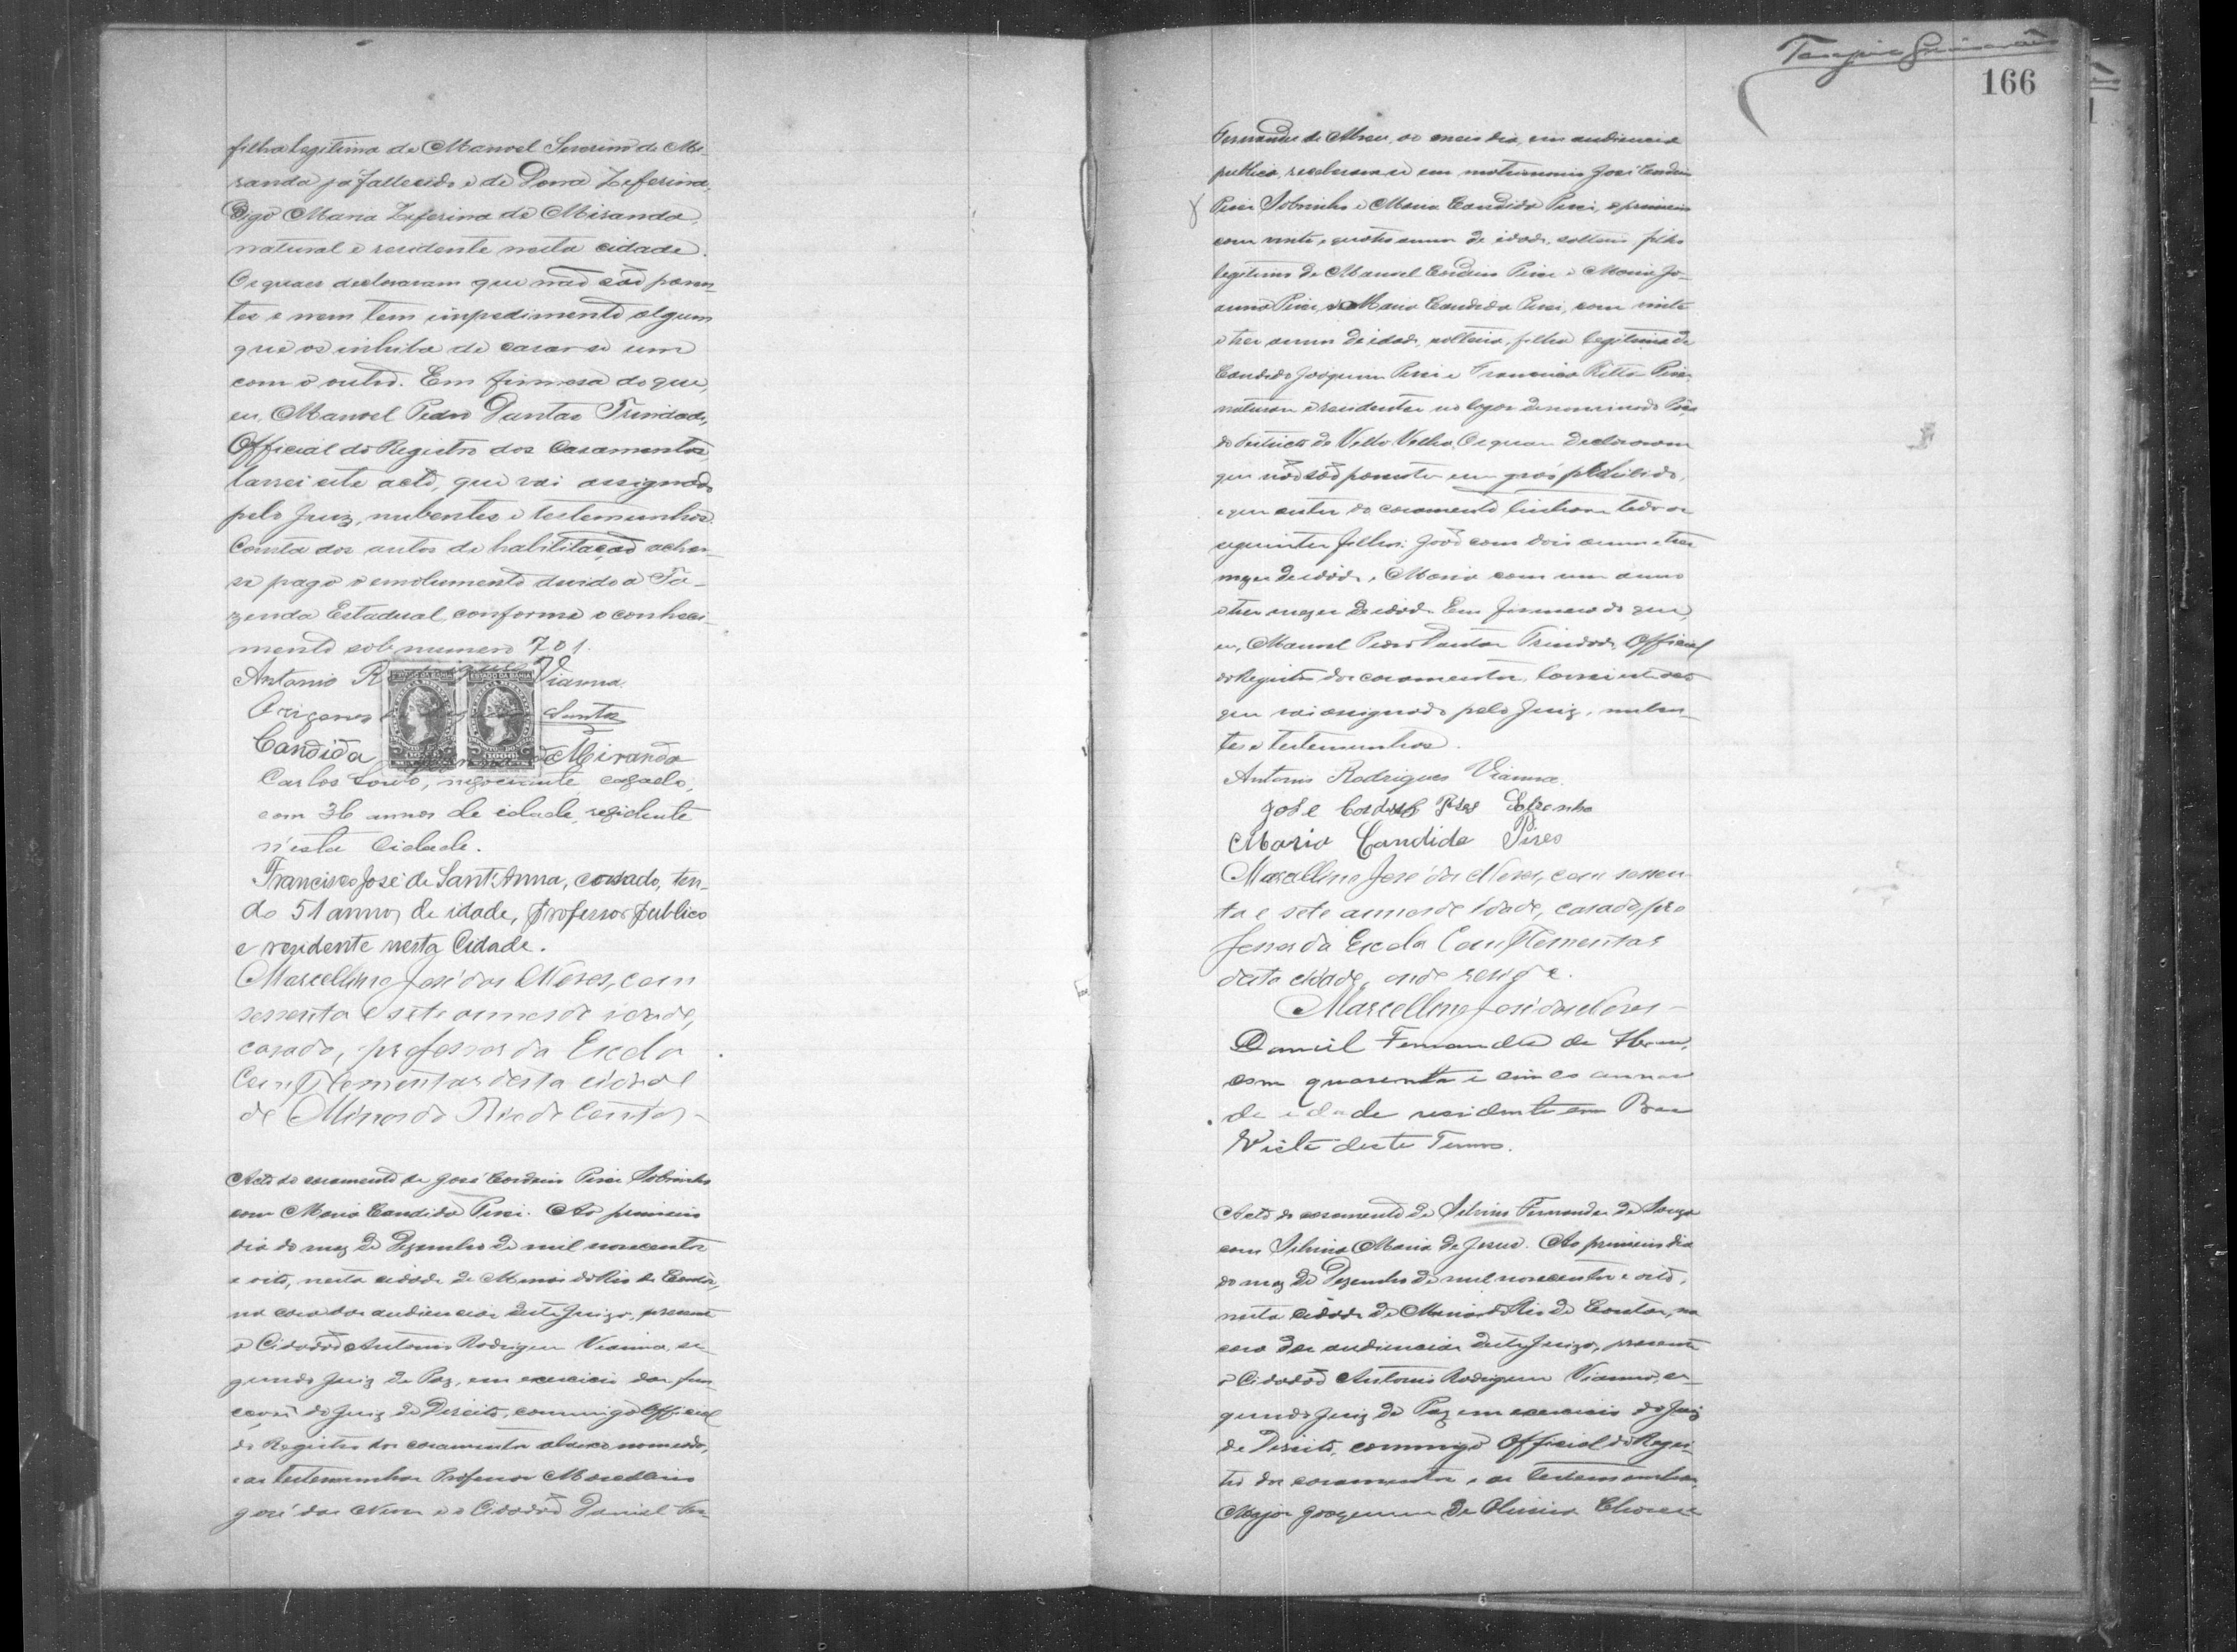 filha legitima de Manoel Severino de Mi-
randa já fallecido e de Dona Zeferina,
digo Maria Zeferina de Miranda,
natural e residente nesta cidade.
Os quaes declararam que não são paren-
tes e nem tem impedimento algum
que os inhiba de casar-se um
com o outro. Em firmesa do que,
eu, Manoel Pedro Dantas Trindade,
Official do Registro dos Casamentos,
lavrei este acto, que vai assignado
pelo Juiz, nubentes e testemunhas.
Consta dos autos de habilitação achar-
se pago o emolumento devido a Fa-
zenda Estadual, conforme o conheci-
mento sob numero 701.
Antonio Vianna.
Santos
Candida de Miranda
Carlos Souto, negociante, casado,
com 36 annos de idade, residente
n'esta Cidade.
Francisco José de Sant'Anna, casado, ten-
do 51 annos de idade, professor publico
e residente nesta Cidade.
Marcellino José das Neves, com
sessenta e sete annos de idade,
casado, professor da Escola
Complementar desta cidade
de Minas do Rio de Contas
Acto do casamento de José Cordeiro Pires Sobrinho
com Maria Candida Pires. Ao primeiro
dia do mez de Dezembro de mil novecentos
e oito, nesta cidade de Minas do Rio de Contas,
na casa das audiencias deste Juizo, presente
o Cidadão Antonio Rodrigues Vianna, se-
gundo Juiz de Paz, em exercicio das func-
ções do Juiz de Direito, commigo Official
do Registro dos casamentos abaixo nomeado,
e as testemunhas Professor Marcellino
José das Neves e o Cidadão Daniel Fer-
166
Fernandes de Abreu, ao meio dia, em audiencia
publica, receberam-se em matrimonio José Cordeiro
Pires Sobrinho e Maria Candida Pires, o primeiro
com vinte e quatro annos de idade, solteiro, filho
legitimo de Manoel Cordeiro Pires e Maria Jo-
anna Pires, e Maria Candida Pires, com vinte
e tres annos de idade, solteira, filha legitima de
Candido Joaquim Pires e Francisca Ritta Pires
naturaes e residentes no logar denominado
do Districto de Vello Velho. Os quaes declararam
que não são parentes em gráo prohibido,
e que antes do casamento tinham tido os
seguintes filhos: João com dois annos e tres
mezes de idade, e Maria com um anno
e tres mezes de idade. Em firmesa do que,
eu, Manoel Pedro Dantas Trindade, Official
do Registro dos casamentos, lavrei este acto
que vai assignado pelo Juiz, nuben-
tes e testemunhas.
Antonio Rodrigues Vianna.
José Cordeiro Pires Sobrinho
Maria Candida Pires
Marcellino José das Neves, com sessen-
ta e sete annos de idade, casado, pro
fessor da Escola Complementar
desta cidade, onde reside.
Marcellino José das Neves
Daniel Fernandes de Abreu,
com quarenta e cinco annos
de idade residente em Boa
Vista deste Termo.
Acto do casamento de Silvino Fernandes de Souza
com Silvina Maria de Jesus. Ao primeiro dia
do mez de Dezembro de mil novecentos e oito,
nesta cidade de Minas do Rio de Contas, na
casa das audiencias deste Juizo, presente
o Cidadão Antonio Rodrigues Vianna, se-
gundo Juiz de Paz em exercicio do Juiz
de Direito, commigo Official do Regis-
tro dos casamentos e as testemunhas,
Major Joaquim de Oliveira